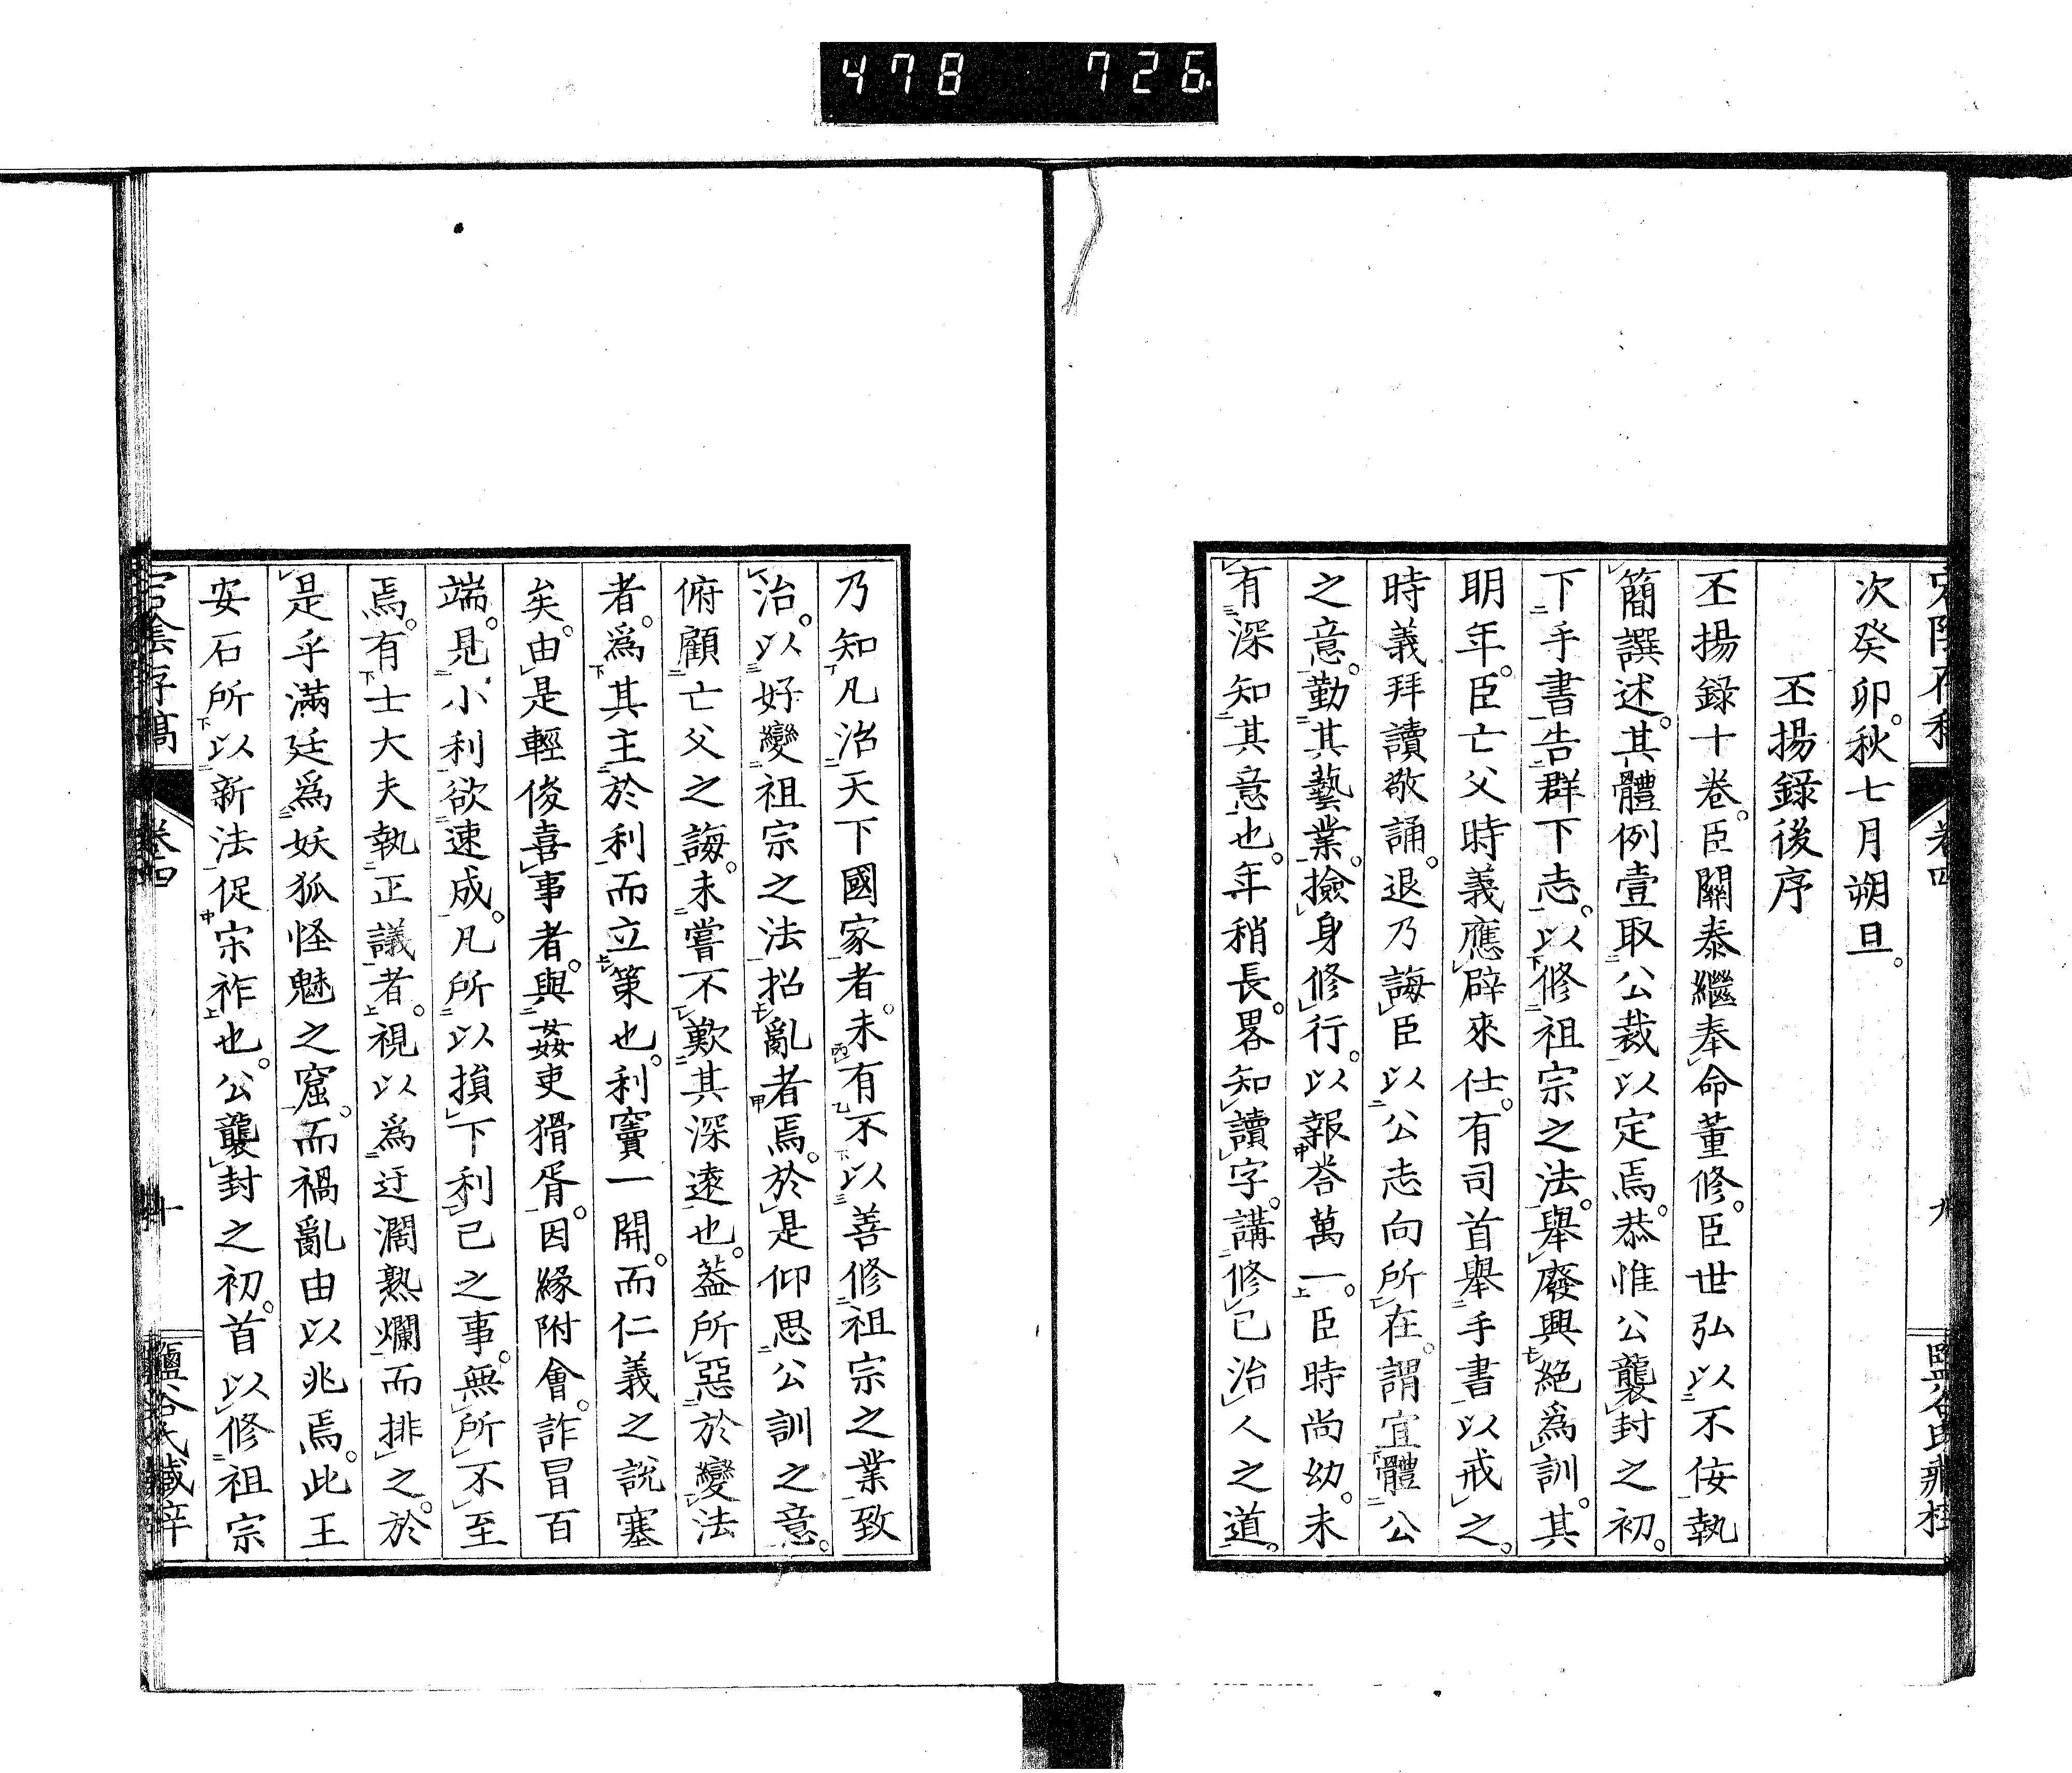 478 726
次癸卯。秋七月朔旦。
丕揚錄後序
丕揚錄十卷。臣關泰繼奉命董修。臣世弘以不侫執
簡譔述。其體例壹取公裁以定焉。恭惟公襲封之初。
下手書告群下志。以修祖宗之法。舉廢興絕爲訓。其
明年。臣亡父時義應辟來仕。有司首舉手書以戒之。
時義拜讀敬誦。退乃誨臣以公志向所在。謂宜體公
之意。勤其藝業。撿身修行。以報荅萬一。臣時尚幼。未
有深知其意也。年稍長。畧知讀字。講修己治人之道。
乃知凡治天下國家者。未有不以善修祖宗之業致
治。以好變祖宗之法招亂者焉。於是仰思公訓之意。
俯顧亡父之誨。未嘗不歎其深遠也。蓋所惡於變法
者。爲其主於利而立策也。利竇一開。而仁義之說塞
矣。由是輕俊喜事者。與姦吏猾胥。因緣附會。詐冒百
端。見小利欲速成。凡所以損下利己之事。無所不至
焉。有士大夫執正議者。視以爲迂濶熟爛而排之。於
是乎滿廷爲妖狐怪魅之窟。而禍亂由以兆焉。此王
安石所以新法促宋祚也。公襲封之初。首以修祖宗
存稿 卷四 十 鹽谷氏藏梓